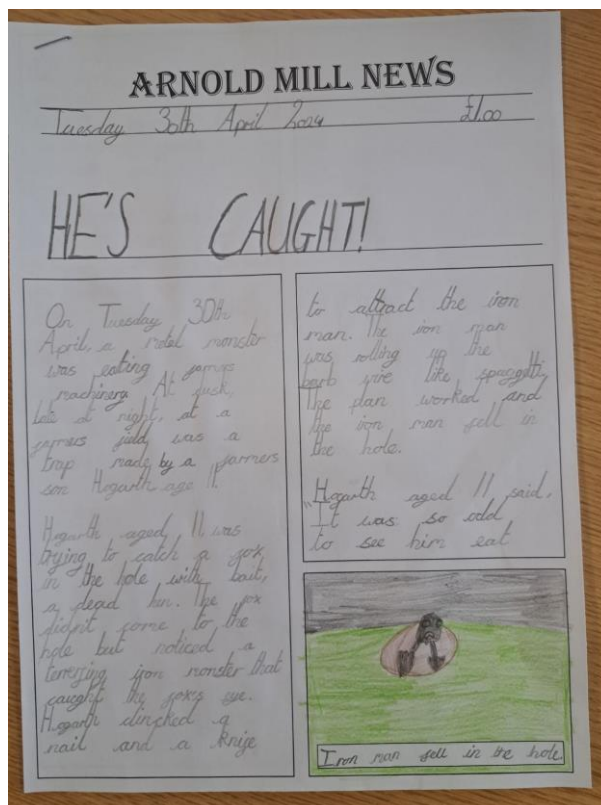 ARNOLD MILL NEWS
Tuesday 30th April 2024 £1.00
HE'S CAUGHT!
On Tuesday 30th
April, a metel monster
was eating farmers
machinery. At dusk,
late at night, at a
farmers field was a
trap made by a farmers
son Hogarth age 11.
Hogarth aged 11 was
trying to catch a fox
in the hole with bait,
a dead hen. The fox
didn't come to the
hole but noticed a
terrifing iron monster that
caught the fox's eye.
Hogarth clincked a
nail and a knife
to attract the iron
man. The iron man
was rolling up the
barb wire like spaggetti,
The plan worked and
the iron man fell in
the hole.
Hogarth aged 11 said,
"It was so odd
to see him eat
Iron man fell in the hole.